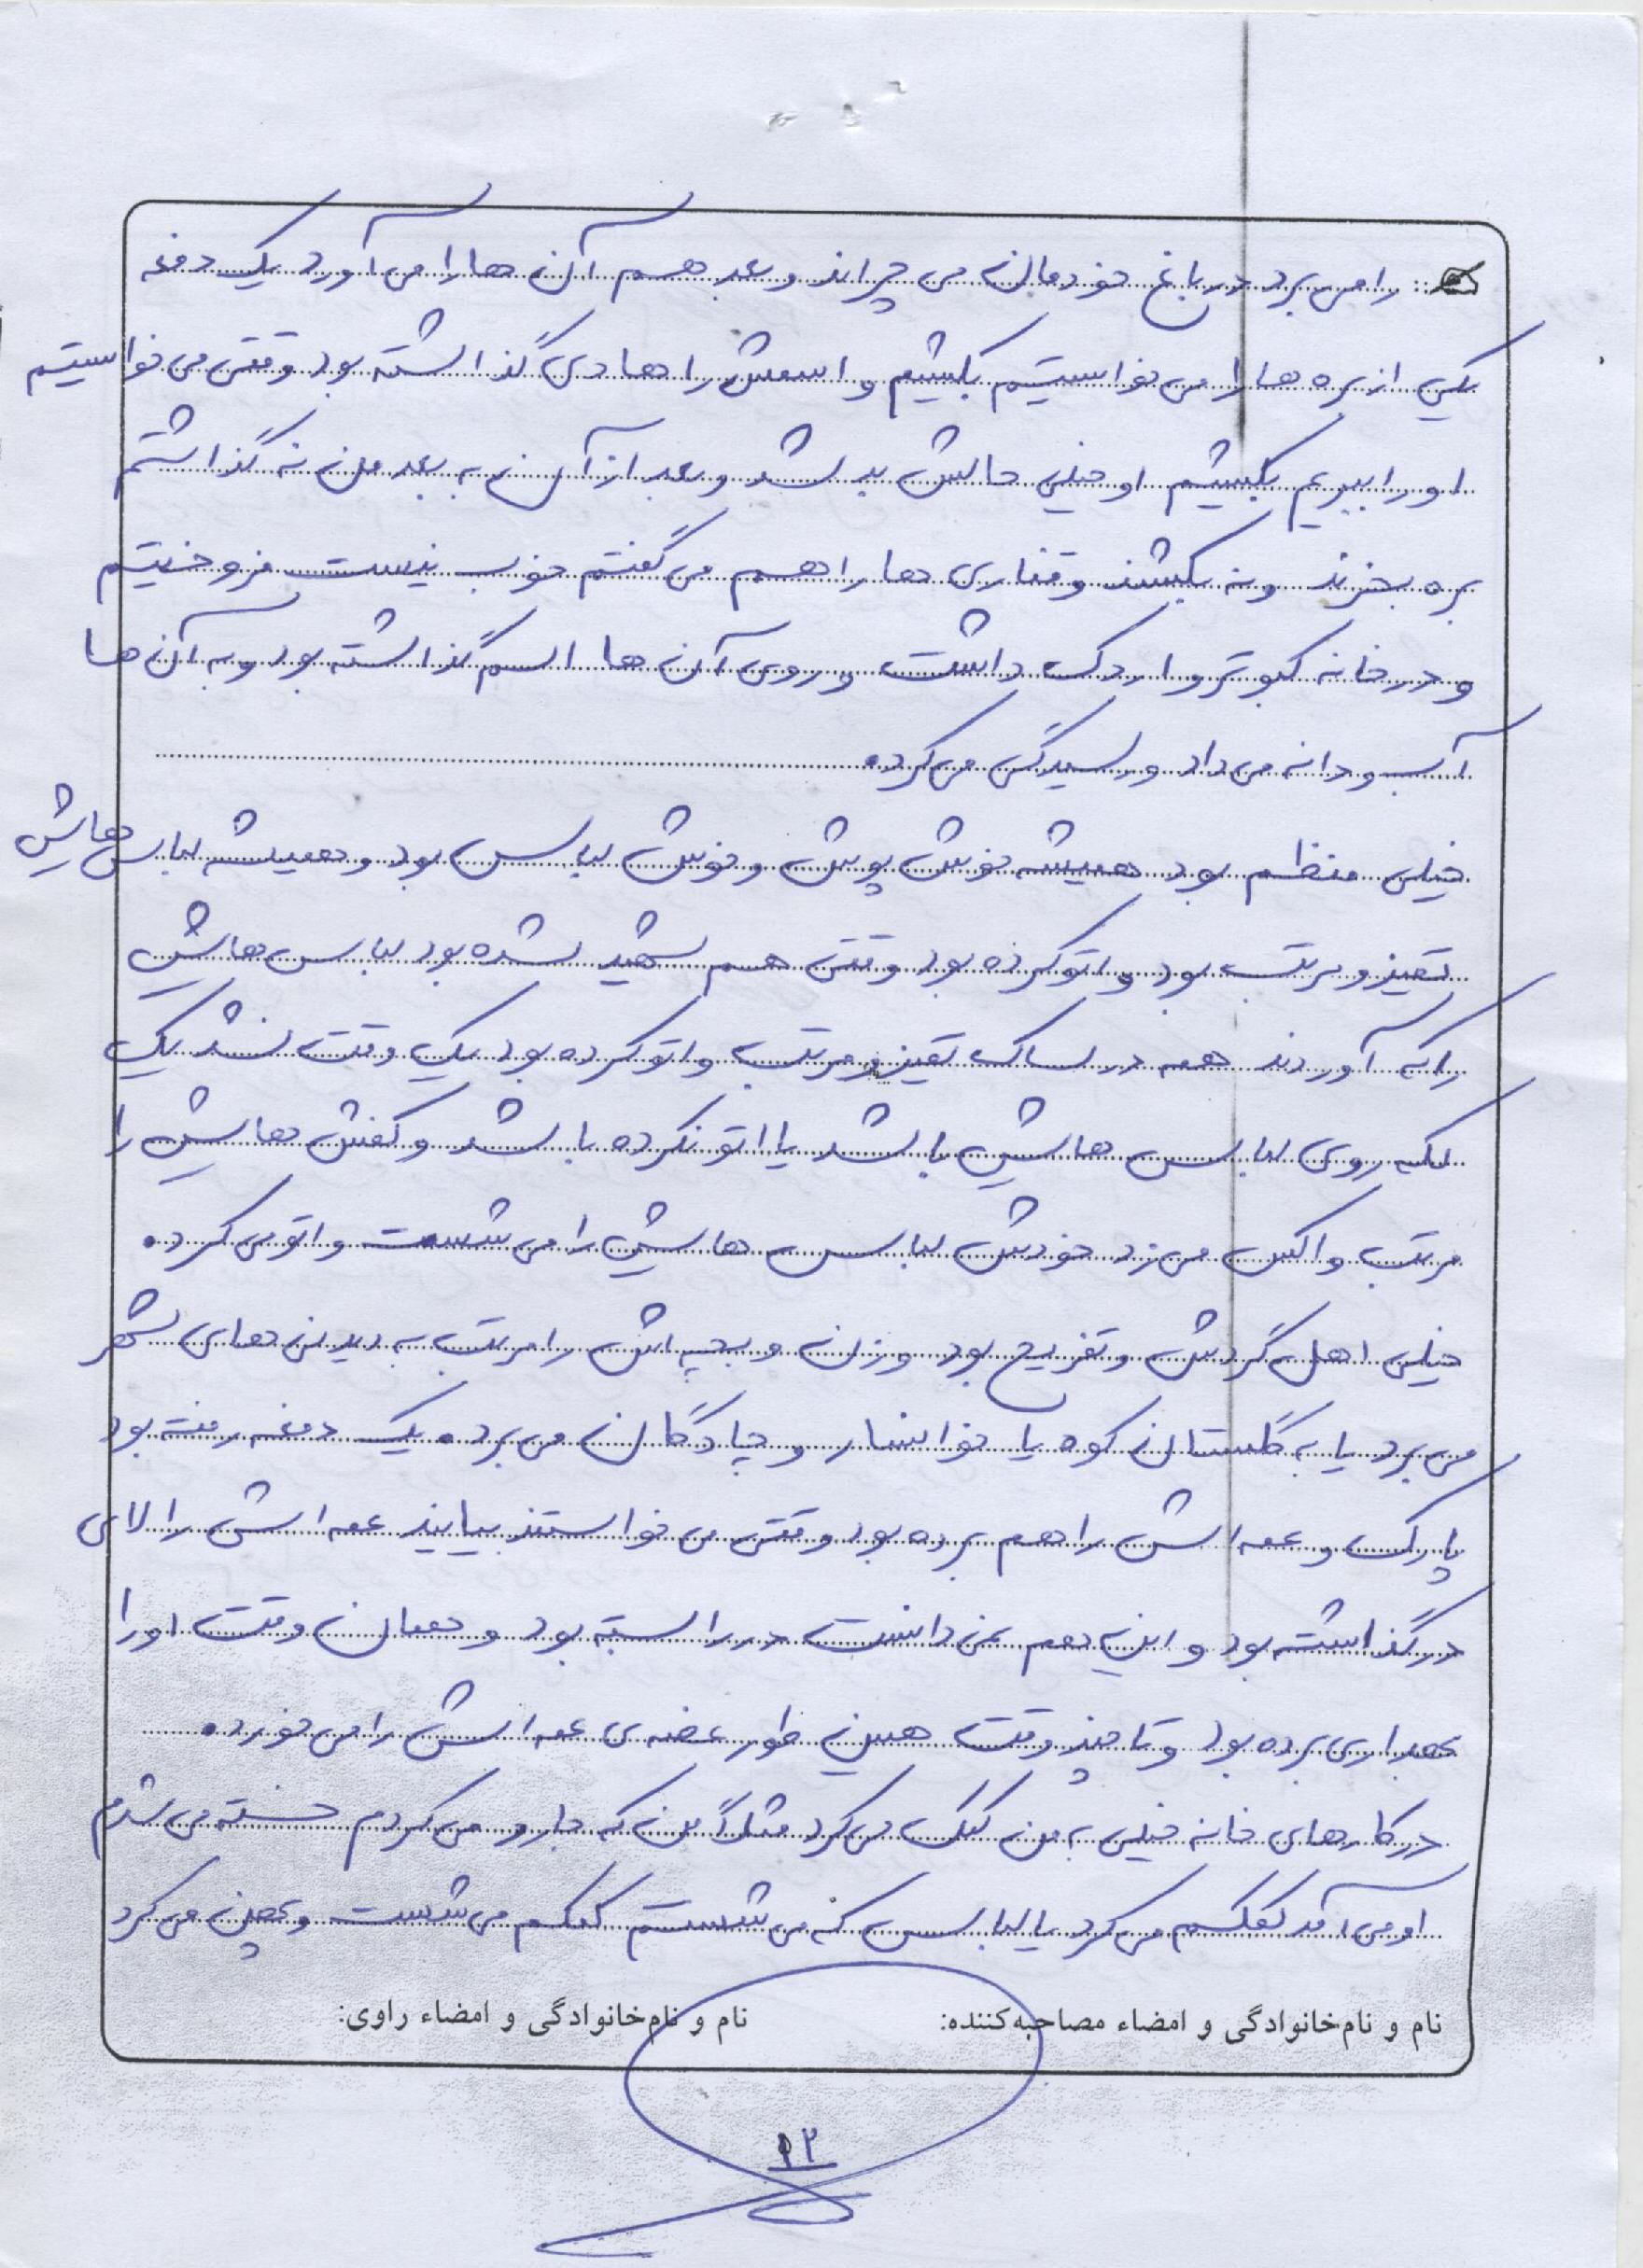 را می برد در باغ خودمان می چراند و بعد هم آن ها را می آورد یک دفعه
یکی از بره ها را می خواستیم بکشیم و اسمش را هادی گذاشته بود وقتی می خواستیم
او را ببریم بکشیم او خیلی حالش بد شد و بعد از آن به بعد من نه گذاشتم
بره بخرند و نه بکشند و قناری ها را هم می گفتم خوب نیست فروختیم
و در خانه کبوتر و اردک داشت و روی آن ها اسم گذاشته بود و به آن ها
آب و دانه می داد و رسیدگی می کرد.
خیلی منظم بود همیشه خوش پوش و خوش لباس بود و همیشه لباس هایش
تمیز و مرتب بود و اتو کرده بود وقتی هم شهید شده بود لباس هایش
را که آوردند همه در ساک تمیز و مرتب و اتو کرده بود یک وقت نشد یک
لکه روی لباس هایش باشد یا اتو نکرده باشد و کفش هایش را
مرتب واکس می زد خودش لباس هایش را می شست و اتو می کرد.
خیلی اهل گردش و تفریح بود و زن و بچه اش را مرتب به دیدنی های شهر
می برد یا به گلستان کوه یا خوانسار و چادگان می برد. یک دفعه رفته بود
پارک و عمه اش را هم برده بود وقتی می خواستند بیایند عمه اش را لای
در گذاشته بود و این هم نمی دانست در را بسته بود و همان وقت او را
بهداری برده بود و تا چند وقت همین طور غصه ی عمه اش را می خورد.
در کارهای خانه خیلی به من کمک می کرد مثلاً من که جارو می کردم خسته می شدم
او می آمد کمکم می کرد یا لباس که می شستم کمکم می شست و پهن می کرد
نام و نام‌خانوادگی و امضاء مصاحبه‌کننده: نام و نام‌خانوادگی و امضاء راوی:
۱۲